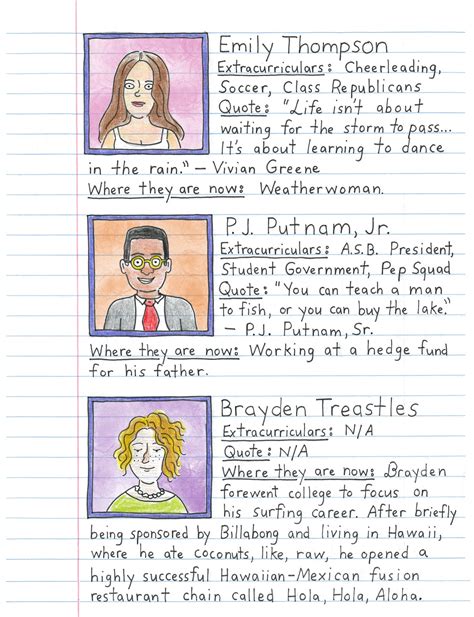 Emily Thompson
Extracurriculars: Cheerleading,
Soccer, Class Republicans
Quote: "Life isn't about
waiting for the storm to pass...
It's about learning to dance
in the rain." – Vivian Greene
Where they are now: Weatherwoman.
P.J. Putnam, Jr.
Extracurriculars: A.S.B. President,
Student Government, Pep Squad
Quote: "You can teach a man
to fish, or you can buy the lake."
– P.J. Putnam, Sr.
Where they are now: Working at a hedge fund
for his father.
Brayden Treastles
Extracurriculars: N/A
Quote: N/A
Where they are now: Brayden
forewent college to focus on
his surfing career. After briefly
being sponsored by Billabong and living in Hawaii,
where he ate coconuts, like, raw, he opened a
highly successful Hawaiian-Mexican fusion
restaurant chain called Hola, Hola, Aloha.